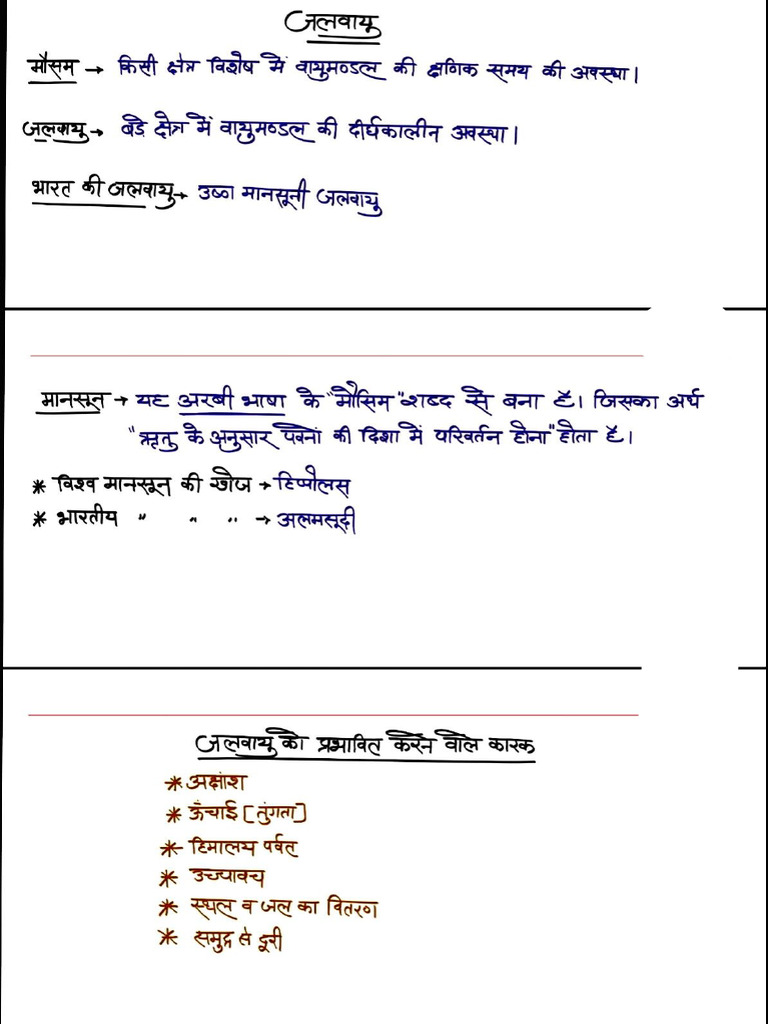 जलवायु
मौसम → किसी क्षेत्र विशेष में वायुमण्डल की क्षणिक समय की अवस्था।
जलवायु → बडे क्षेत्र में वायुमण्डल की दीर्घकालीन अवस्था।
भारत की जलवायु → उष्ण मानसूनी जलवायु
मानसून → यह अरबी भाषा के "मौसिम" शब्द से बना है। जिसका अर्थ
"ऋतु के अनुसार पवनों की दिशा में परिवर्तन होना" होता है।
* विश्व मानसून की खोज → हिप्पोलस
* भारतीय " " " → अलमसूदी
जलवायु को प्रभावित करने वाले कारक
* अक्षांश
* ऊँचाई [तुंगता]
* हिमालय पर्वत
* उच्चावच
* स्थल व जल का वितरण
* समुद्र से दूरी